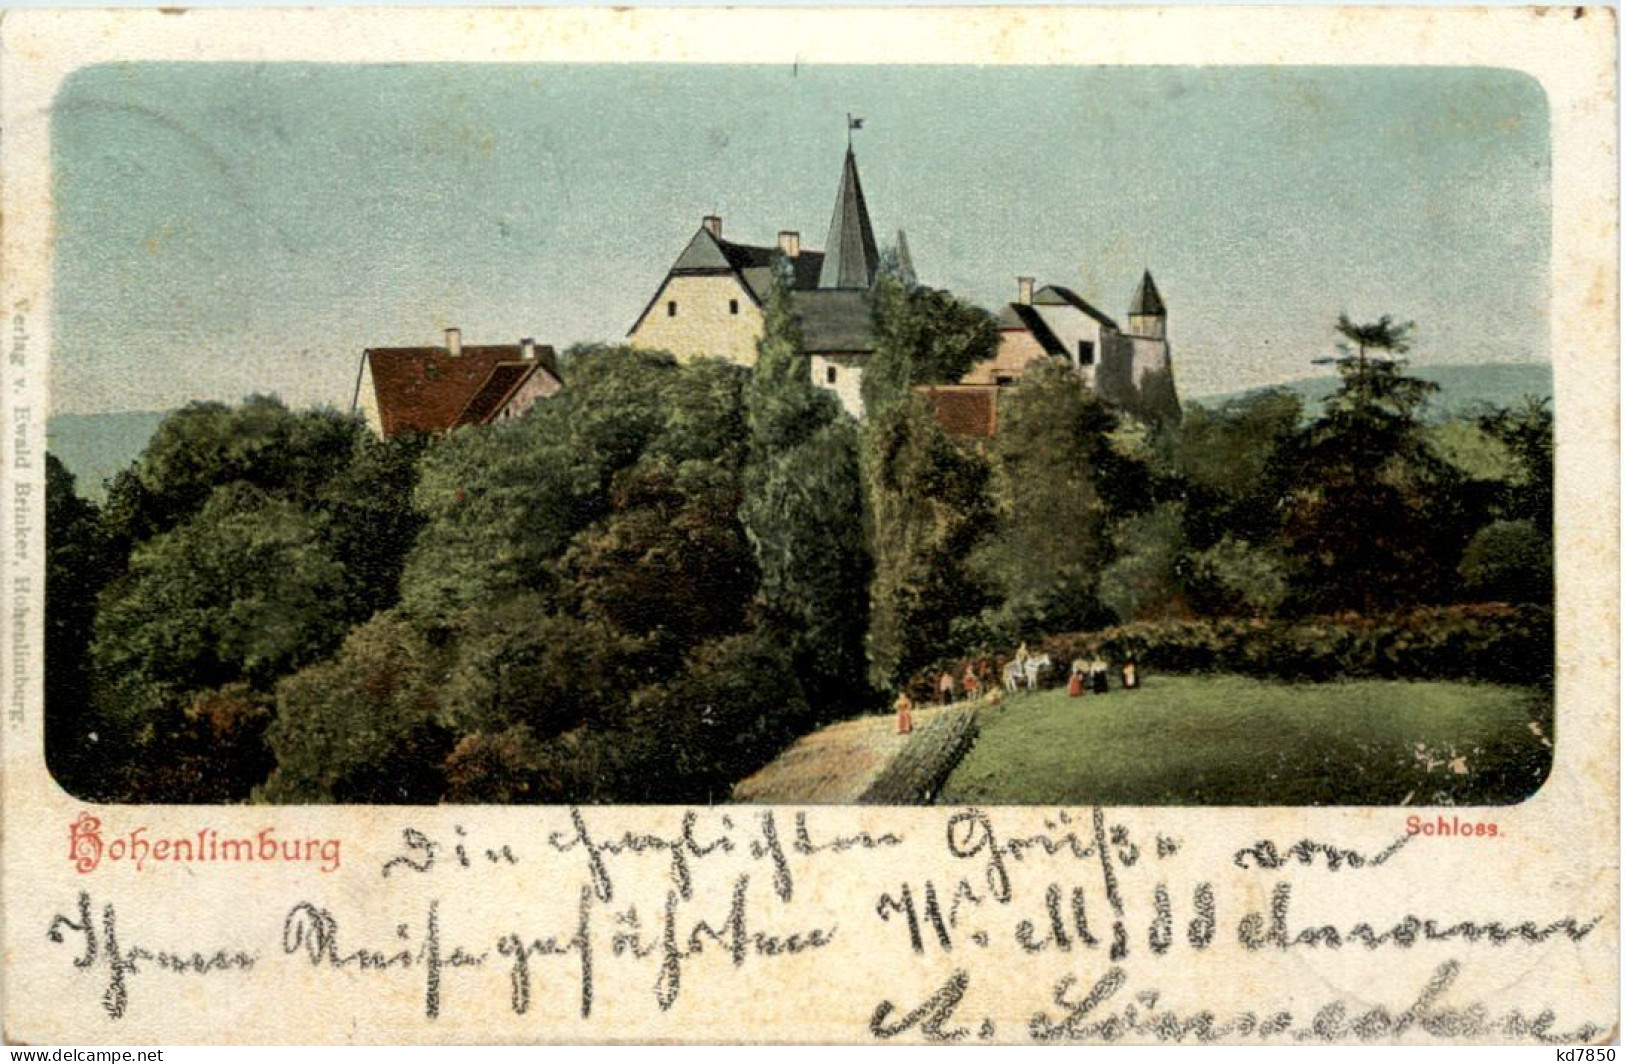 Verlag v. Ewald Brinker, Hohenlimburg.
Hohenlimburg
Schloss.
Die herzlichsten Grüße von
Ihrem Reisegefährten
kd7850